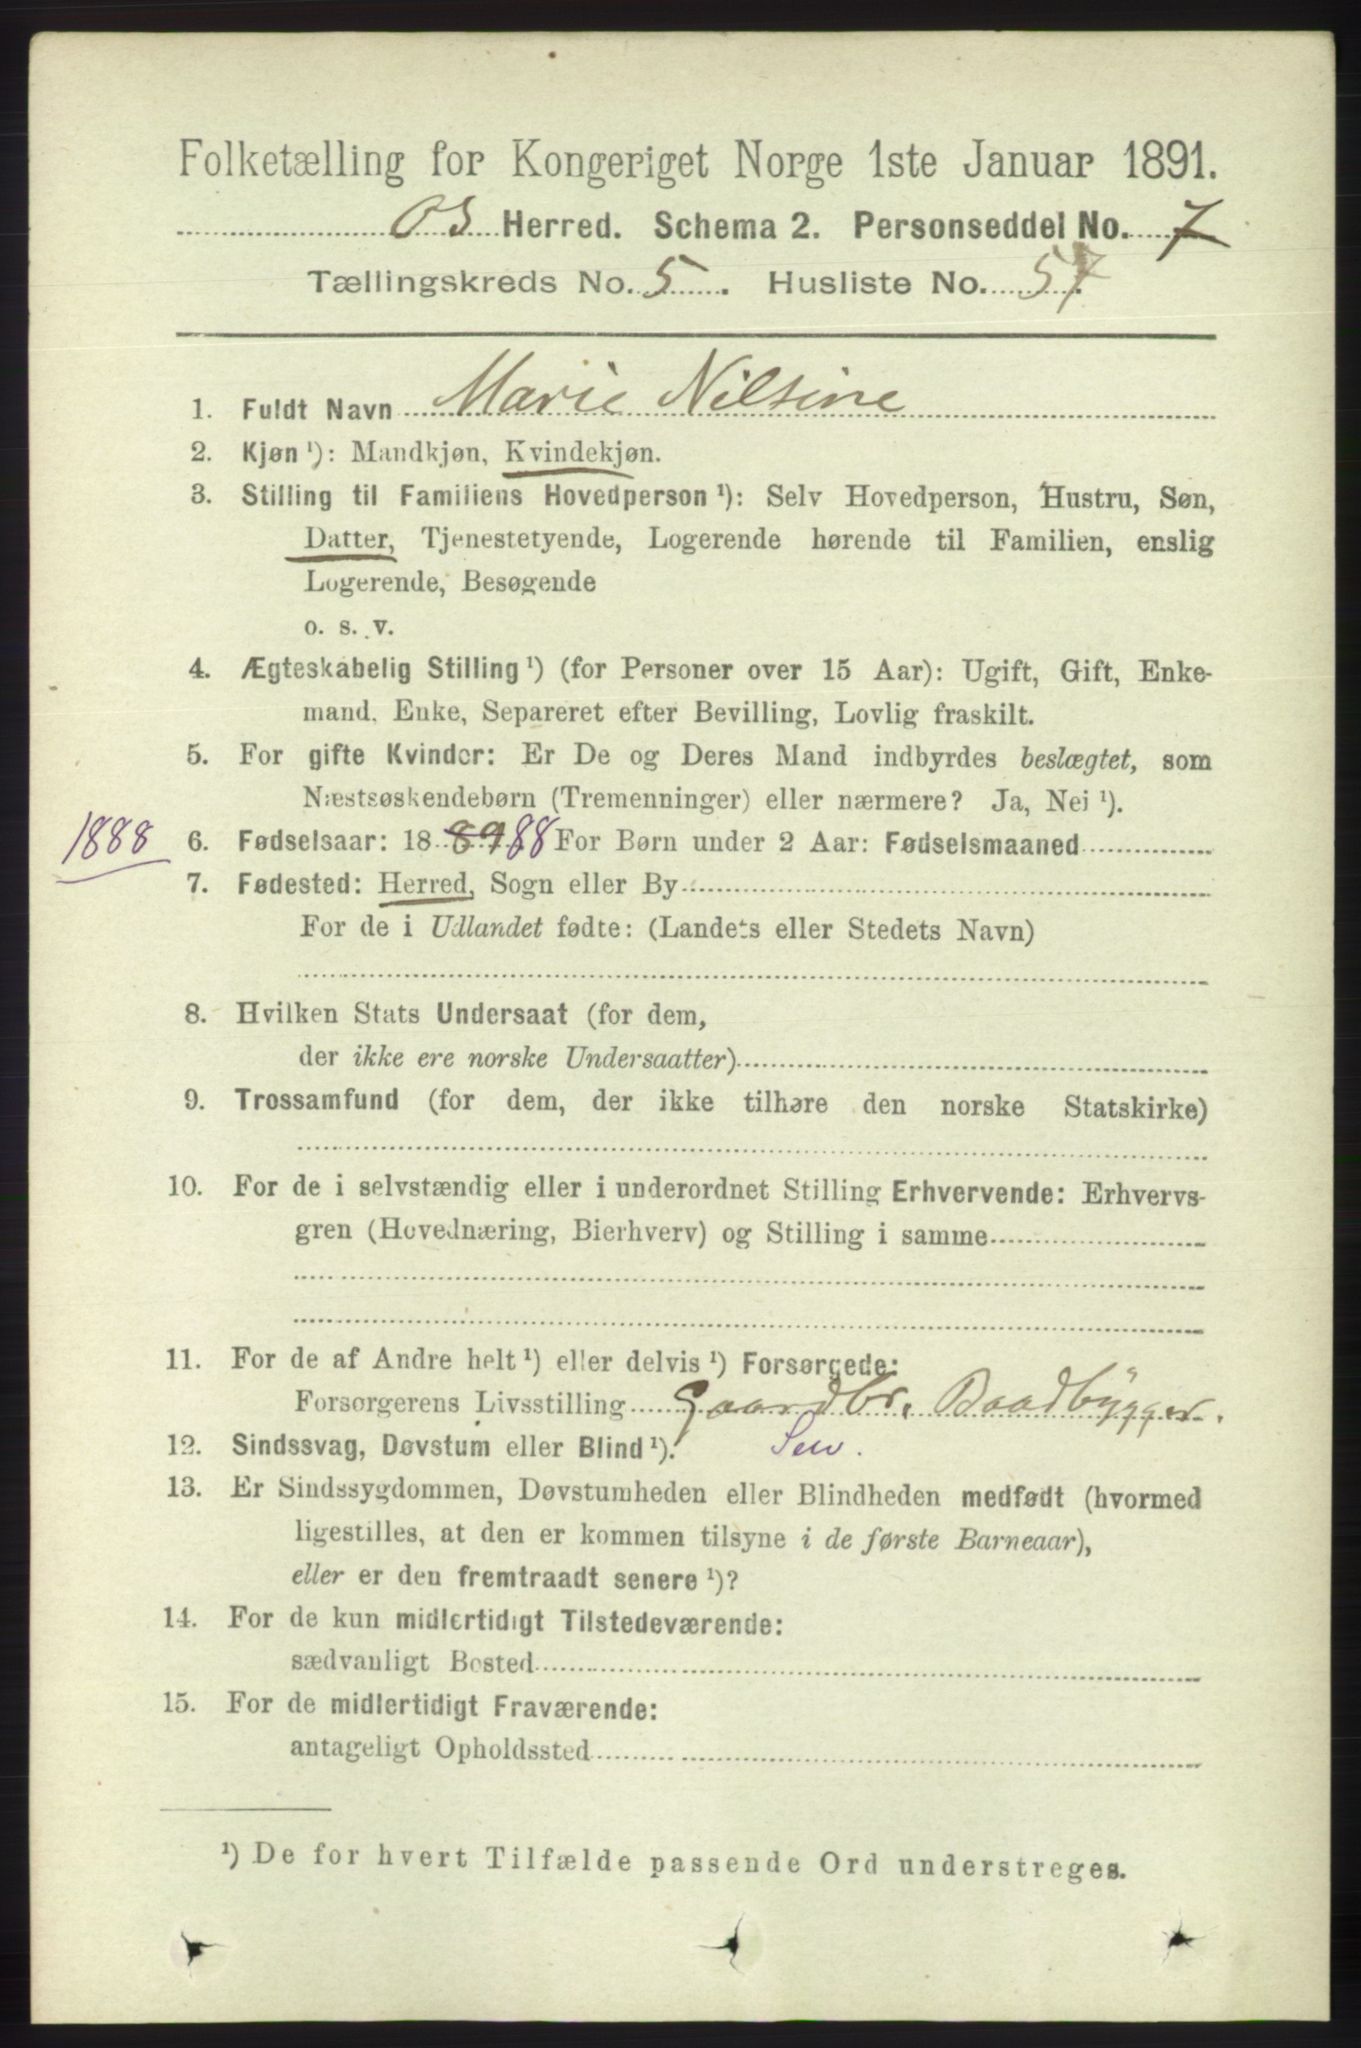 Folketælling for Kongeriget Norge 1ste Januar 1891.
Os Herred. Schema 2. Personseddel No. 7
Tællingskreds No. 5. Husliste No. 57.
1. Fuldt Navn Marie Nilsine
2. Kjøn ¹): Mandkjøn, Kvindekjøn.
3. Stilling til Familiens Hovedperson ¹): Selv Hovedperson, Hustru, Søn,
Datter, Tjenestetyende, Logerende hørende til Familien, enslig
Logerende, Besøgende
o. s. v.
4. Ægteskabelig Stilling ¹) (for Personer over 15 Aar): Ugift, Gift, Enke-
mand, Enke, Separeret efter Bevilling, Lovlig fraskilt.
5. For gifte Kvinder: Er De og Deres Mand indbyrdes beslægtet, som
Næstsøskendebørn (Tremenninger) eller nærmere? Ja, Nei ¹).
1888 6. Fødselsaar: 18 89 88 For Børn under 2 Aar: Fødselsmaaned
7. Fødested: Herred, Sogn eller By
For de i Udlandet fødte: (Landets eller Stedets Navn)
8. Hvilken Stats Undersaat (for dem,
der ikke ere norske Undersaatter)
9. Trossamfund (for dem, der ikke tilhøre den norske Statskirke)
10. For de i selvstændig eller i underordnet Stilling Erhvervende: Erhvervs-
gren (Hovednæring, Bierhverv) og Stilling i samme
11. For de af Andre helt ¹) eller delvis ¹) Forsørgede:
Forsørgerens Livsstilling Gaardbr. Baadbygger.
12. Sindssvag, Døvstum eller Blind ¹).
13. Er Sindssygdommen, Døvstumheden eller Blindheden medfødt (hvormed
ligestilles, at den er kommen tilsyne i de første Barneaar),
eller er den fremtraadt senere ¹)?
14. For de kun midlertidigt Tilstedeværende:
sædvanligt Bosted
15. For de midlertidigt Fraværende:
antageligt Opholdssted
¹) De for hvert Tilfælde passende Ord understreges.